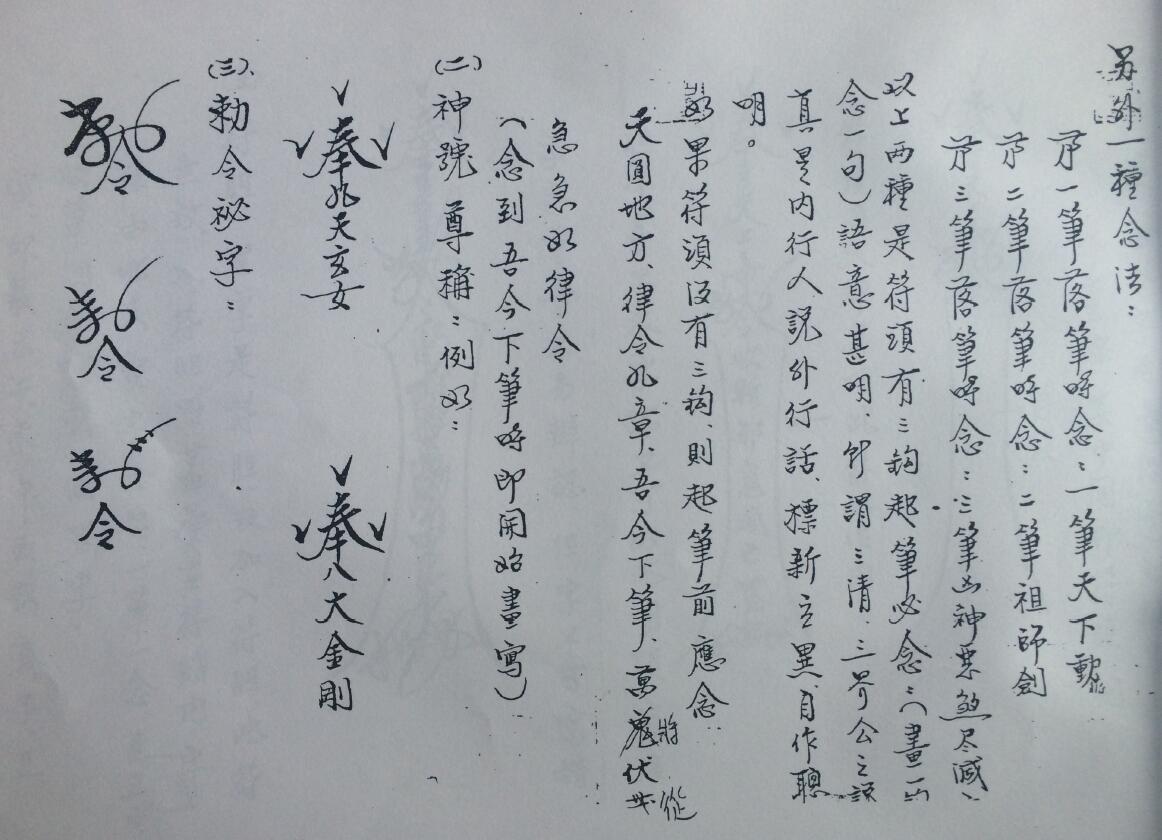 另外一種念法：
第一筆落筆時念：一筆天下動
第二筆落筆時念：二筆祖師劍
第三筆落筆時念：三筆凶神惡煞尽滅、
以上兩種是符頭有三鈎起筆必念：（畫一
念一句）語意甚明、所謂三清、三界公之説
真是内行人説外行話、標新立異自作聰
明。
如果符頭沒有三鈎、則起筆前應念
天圓地方、律令九章、吾今下筆、萬鬼伏 將 從
急急如律令
（念到吾今下筆時即開始畫寫）
(二)神號尊稱：例如：
奉九天玄女 奉八大金剛
(三)、勅令祕字：
令 令 令